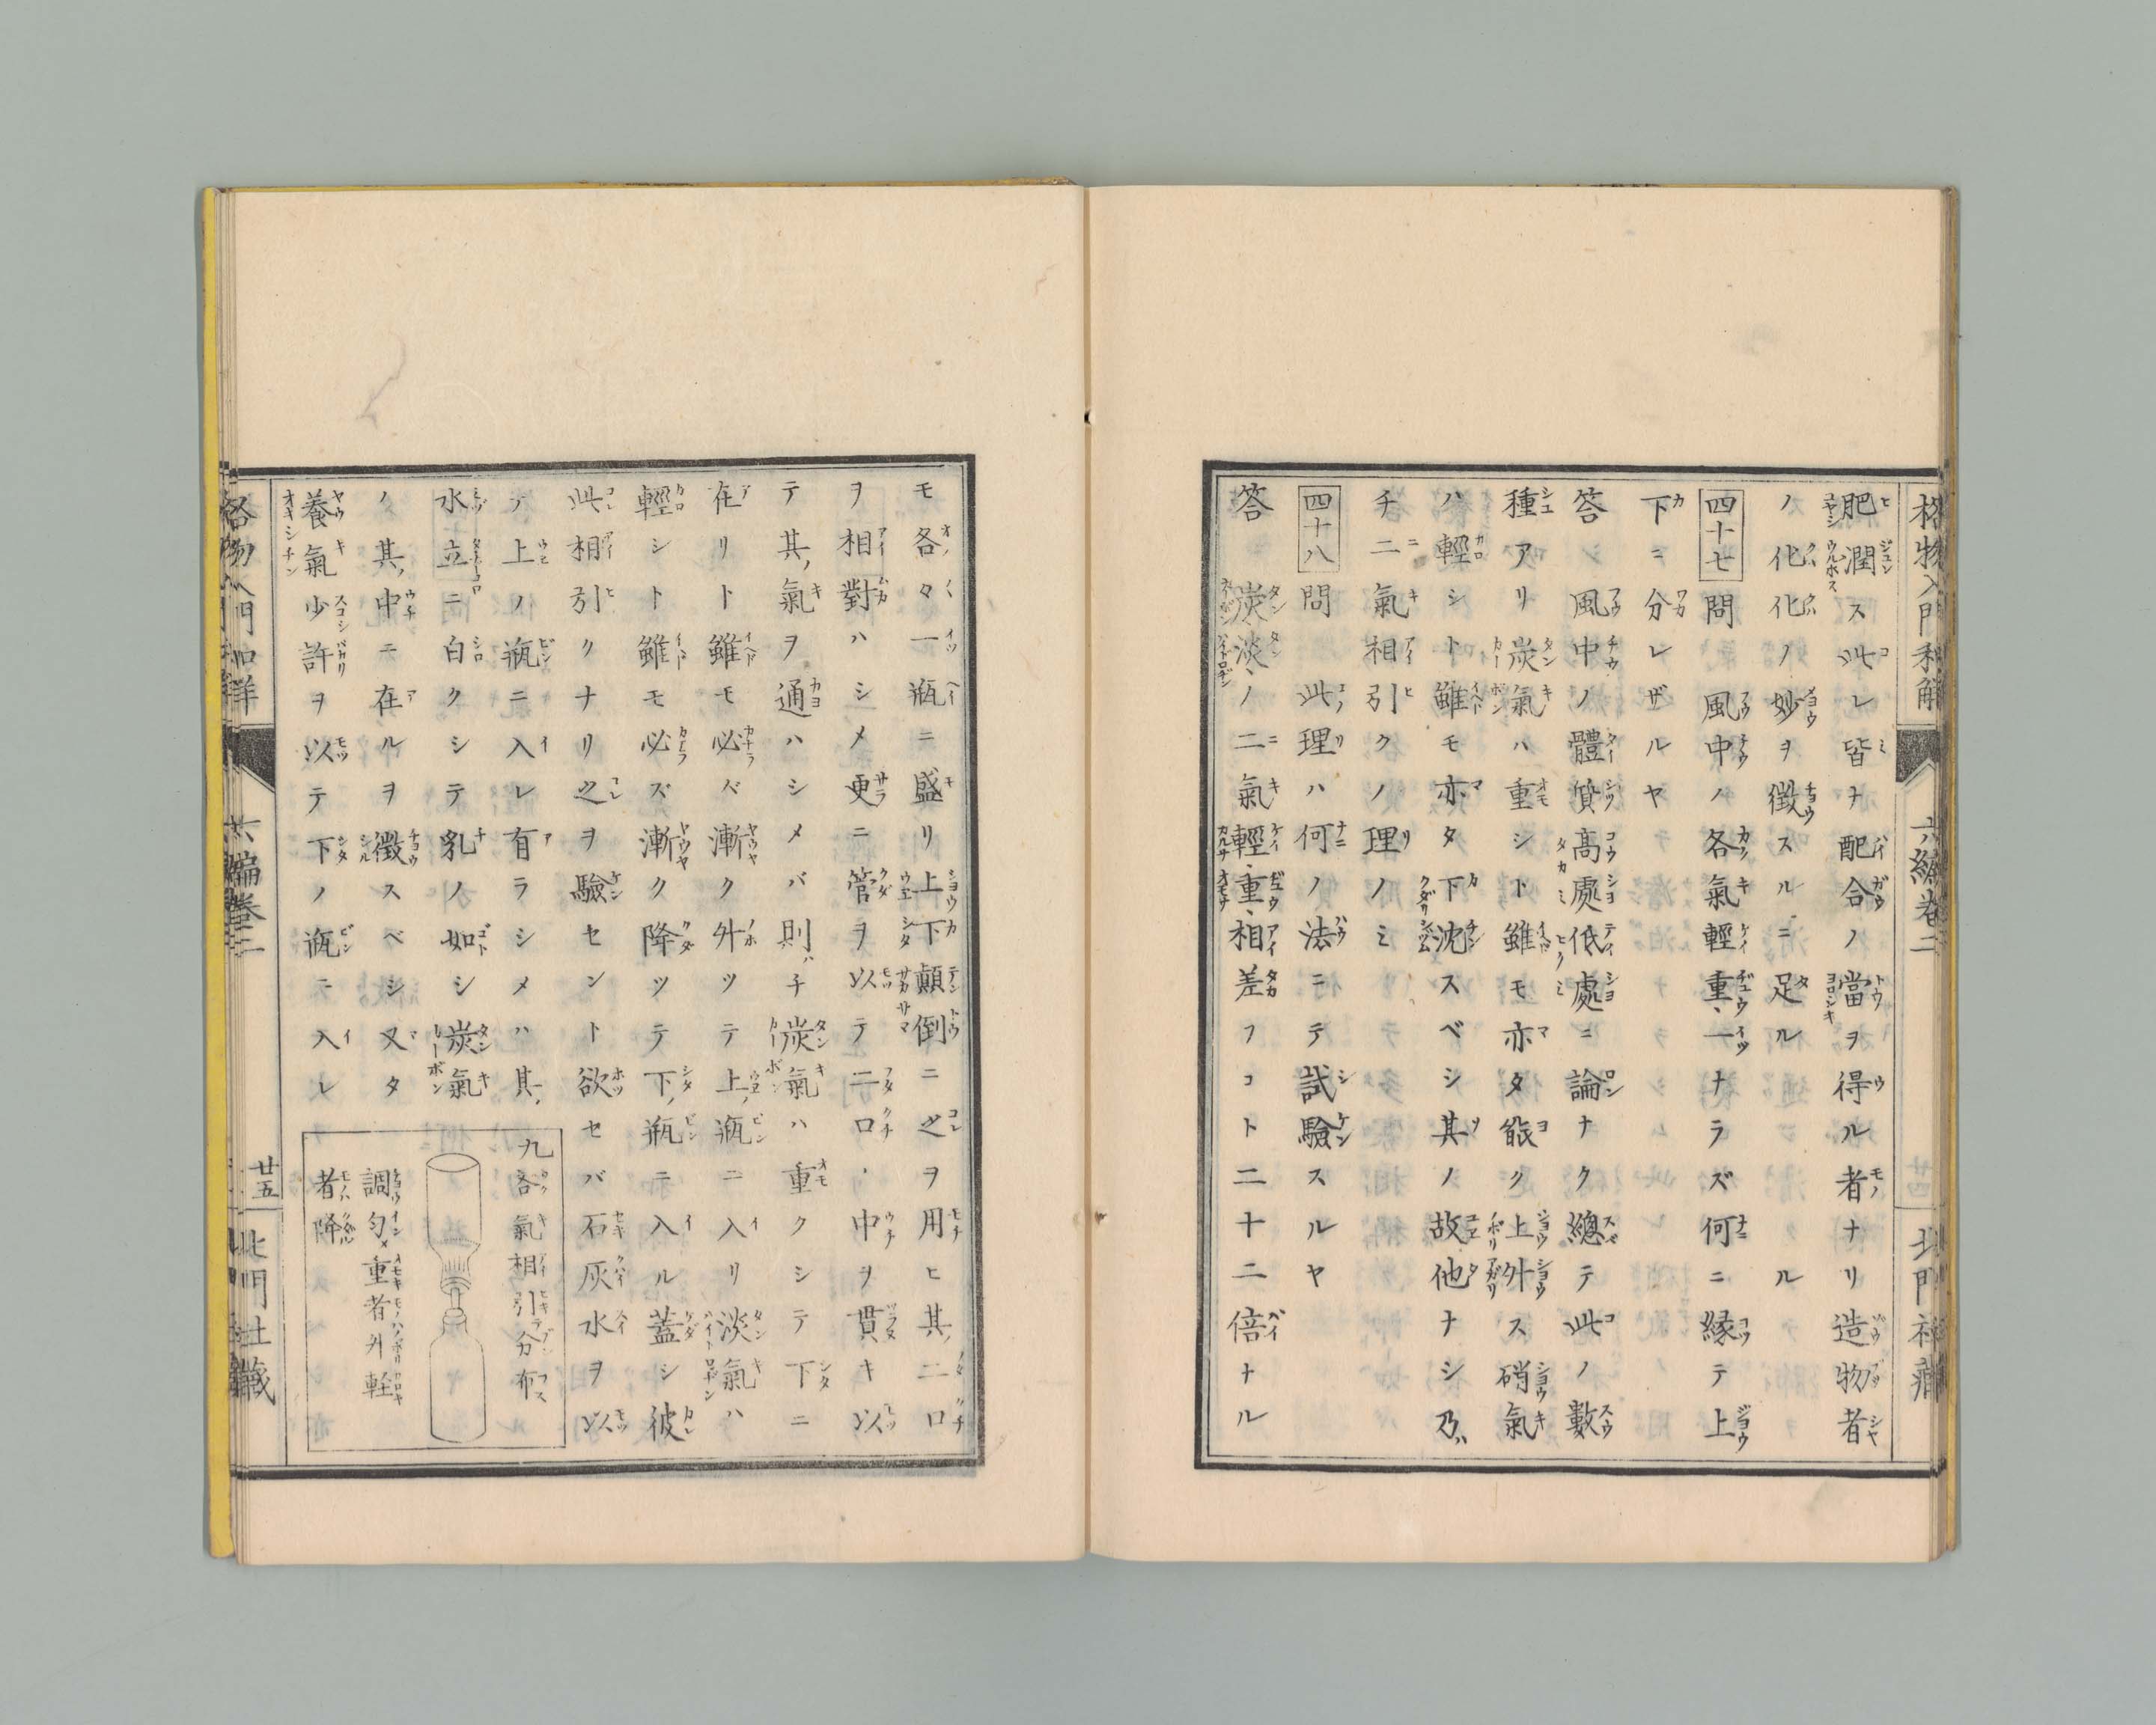 格物入門和解 六編卷二 北門社藏
肥潤ス此レ皆ナ配合ノ當ヲ得ル者ナリ造物者
ノ化化ノ妙ヲ徴スルニ足ル
四十七 問 風中ノ各氣輕重一ナラズ何ニ縁テ上
下ニ分レザルヤ
答 風中ノ體質高處低處ニ論ナク總テ此ノ數
種アリ炭氣ハ重シト雖モ亦タ能ク上升ス硝氣
ハ輕シト雖モ亦タ下沈スベシ其ノ故他ナシ乃
チ二氣相引クノ理ノミ
四十八 問 此理ハ何ノ法ニテ試驗スルヤ
答 炭淡ノ二氣輕重相差フコト二十二倍ナル
モ各々一瓶ニ盛リ上下顛倒ニ之ヲ用ヒ其二口
ヲ相對ハシメ更ニ管ヲ以テ二口中ヲ貫キ以
テ其氣ヲ通ハシメバ則チ炭氣ハ重クシテ下ニ
在リト雖モ必ベ漸ク升ツテ上瓶ニ入リ淡氣ハ
輕シト雖モ必ズ漸ク降ツテ下瓶ニ入ル蓋シ彼
此相引クナリ之ヲ驗センと欲セバ石灰水ヲ以
テ上ノ瓶ニ入レ有ラシメハ其
水立ニ白クシテ乳ノ如シ炭氣
ノ其中ニ在ルヲ徴スベシ又タ
養氣少許ヲ以テ下ノ瓶ニ入レ
九各氣相引分布
調匀メ重者升輕
者降
格物入門和解 六編卷二 廿五 北門社藏